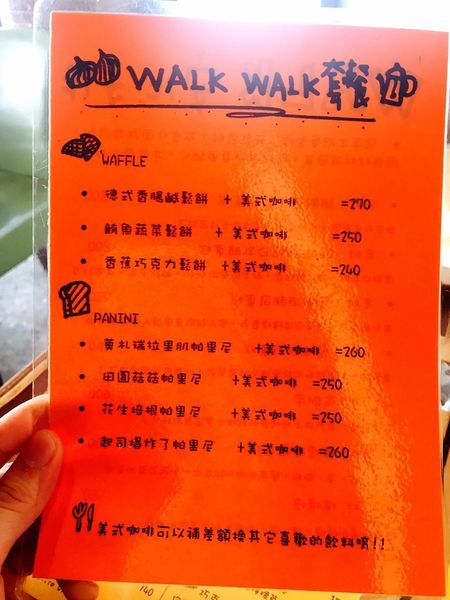 WALK WALK套餐
WAFFLE
• 德式香腸鹹鬆餅 +美式咖啡 =270
• 鮪魚蔬菜鬆餅 +美式咖啡 =250
• 香蕉巧克力鬆餅 +美式咖啡 =240
PANINI
• 莫札瑞拉里肌帕里尼 +美式咖啡 =260
• 田園菇菇帕里尼 +美式咖啡 =250
• 花生培根帕里尼 +美式咖啡 =250
• 起司爆炸了帕里尼 +美式咖啡 =260
美式咖啡可以補差額換其它喜歡的飲料唷!!
140
150